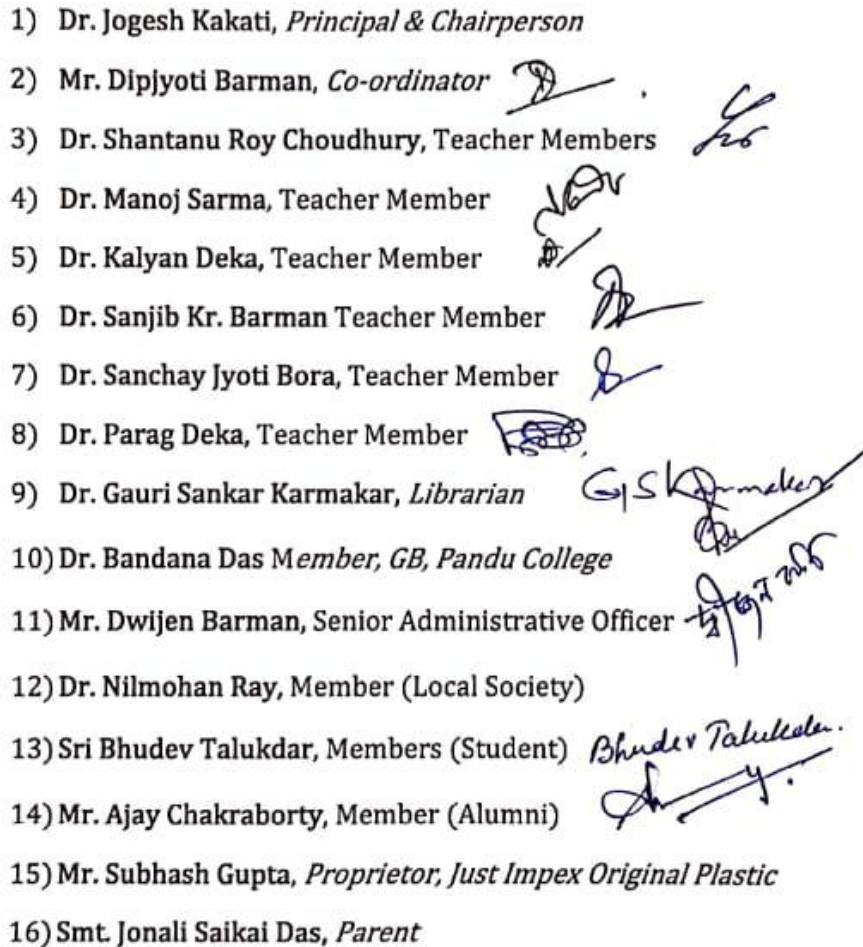 1) Dr. Jogesh Kakati, Principal & Chairperson
2) Mr. Dipjyoti Barman, Co-ordinator
3) Dr. Shantanu Roy Choudhury, Teacher Members
4) Dr. Manoj Sarma, Teacher Member
5) Dr. Kalyan Deka, Teacher Member
6) Dr. Sanjib Kr. Barman Teacher Member
7) Dr. Sanchay Jyoti Bora, Teacher Member
8) Dr. Parag Deka, Teacher Member
9) Dr. Gauri Sankar Karmakar, Librarian GSKarmakar
10) Dr. Bandana Das Member, GB, Pandu College
11) Mr. Dwijen Barman, Senior Administrative Officer
12) Dr. Nilmohan Ray, Member (Local Society)
13) Sri Bhudev Talukdar, Members (Student) Bhudev Talukdar.
14) Mr. Ajay Chakraborty, Member (Alumni)
15) Mr. Subhash Gupta, Proprietor, Just Impex Original Plastic
16) Smt. Jonali Saikai Das, Parent